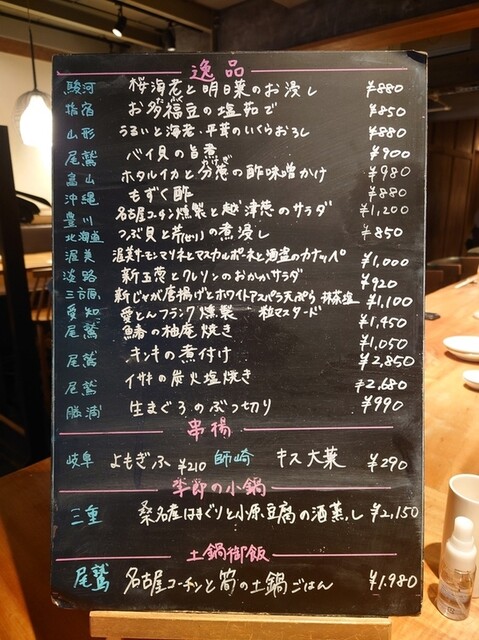 逸品
駿河 桜海老と明日葉のお浸し ¥880
指宿 お多福豆の塩茹で ¥850
山形 うるいと海老、平茸のいくらおろし ¥880
尾鷲 バイ貝の旨煮 ¥900
富山 ホタルイカと分葱の酢味噌かけ ¥980
沖縄 もずく酢 ¥880
豊川 名古屋コーチン燻製と越津葱のサラダ ¥1,200
北海道 つぶ貝と芹(せり)の煮浸し ¥850
渥美 渥美サーモンマリネとマスカルポーネと酒盗のカナッペ ¥1,000
淡路 新玉葱とクレソンのおかかサラダ ¥920
三方原 新じゃが唐揚げとホワイトアスパラ天ぷら 抹茶塩 ¥1,100
愛知 愛とんフランク燻製 粒マスタード ¥1,450
尾鷲 鰆の柚庵焼き ¥1,050
尾鷲 キンキの煮付け ¥2,850
尾鷲 イサキの炭火塩焼き ¥2,680
勝浦 生まぐろのぶつ切り ¥990
串揚
岐阜 よもぎふ ¥210 師崎 キス大葉 ¥290
季節の小鍋
三重 桑名産はまぐりと小原豆腐の酒蒸し ¥2,150
土鍋御飯
尾鷲 名古屋コーチンと筍の土鍋ごはん ¥1,980